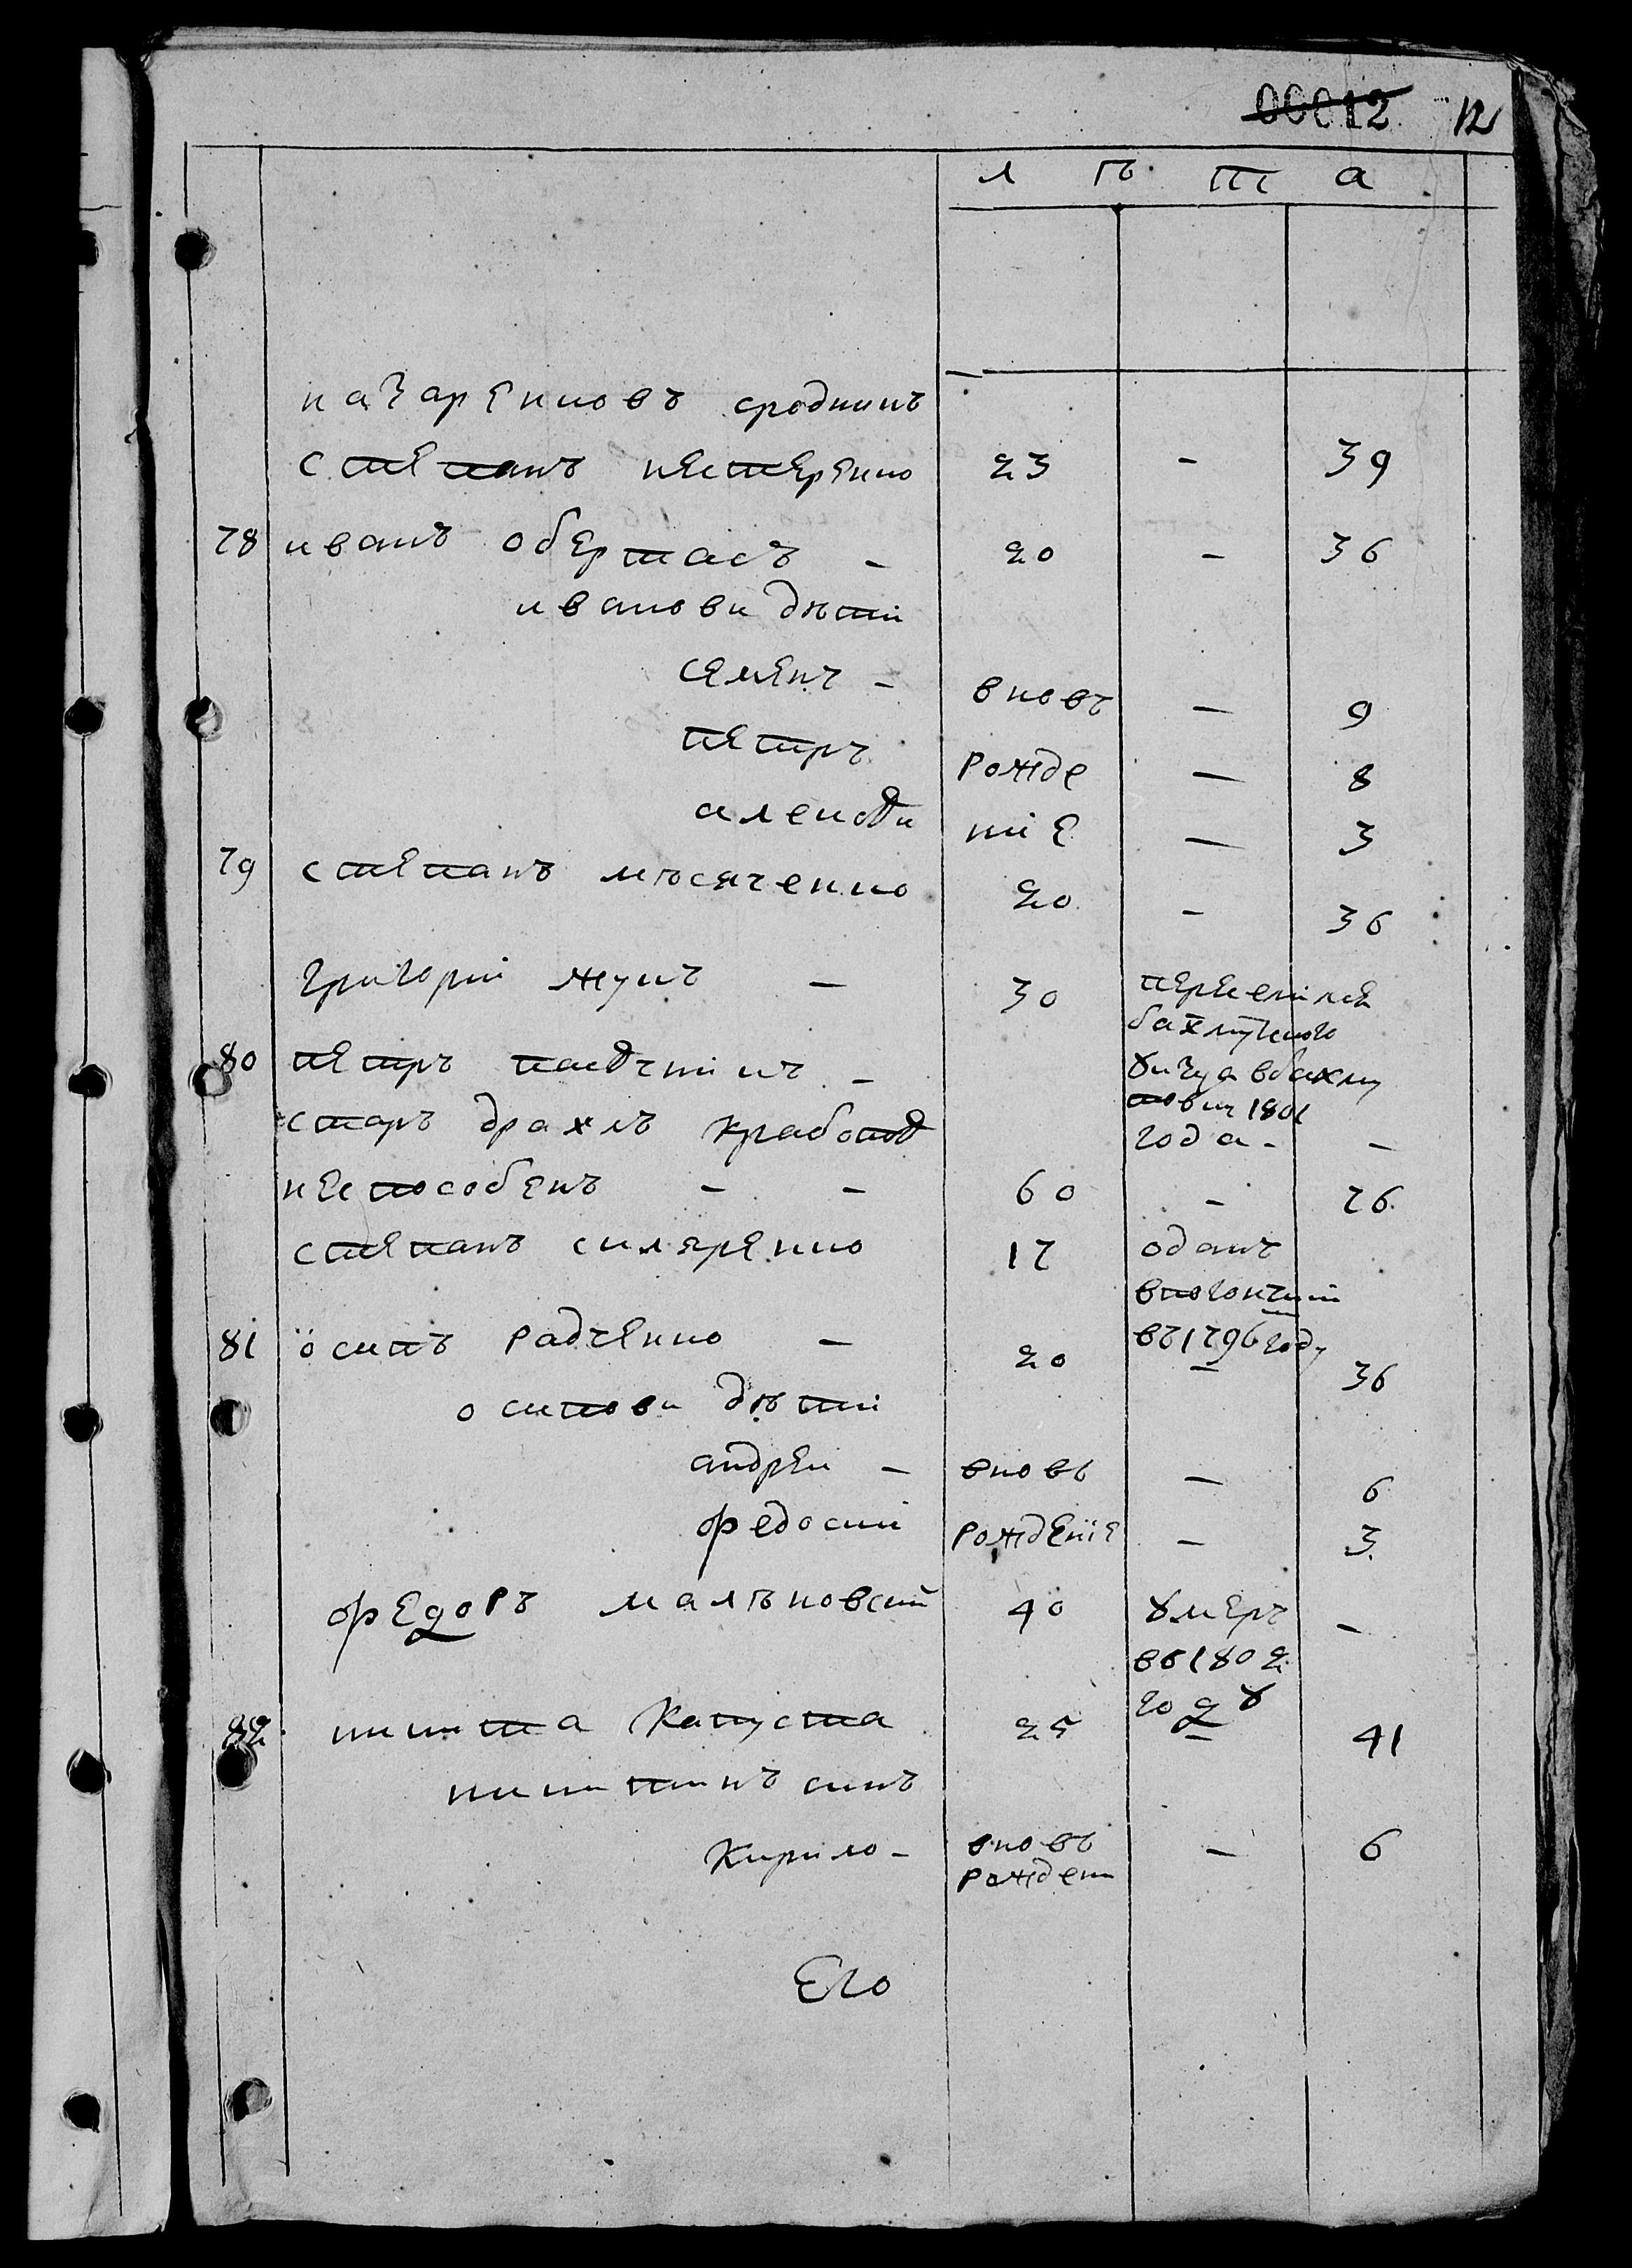 00012 12
лѣта
назаренковъ сродникъ
степанъ нестеренко 23 - 39
78 иванъ обертасъ - 20 - 36
иванови дѣти
семенъ - вновь - 9
петръ рожде - 8
алексѣй ніе - 3
79 степанъ мѣсяченко 20 - 36
григорій жукъ - 30 переселілся
бахмутского
80 петръ -
уизда вбахму
старъ драхлъ кработѣ 1801
года - -
неспособенъ - - 60 - 76
степанъ скляренко 17 оданъ
впогончии
въ 1796 году
81 осипъ радченко - 20 - 36
осипови дѣти
андреи - вновь - 6
федосий рождение - 3
федоръ мальновский 40 умеръ -
въ 1802
году
82 никита капуста 25 - 41
никитинъ синъ
кирило - вновь - 6
рожден
Его